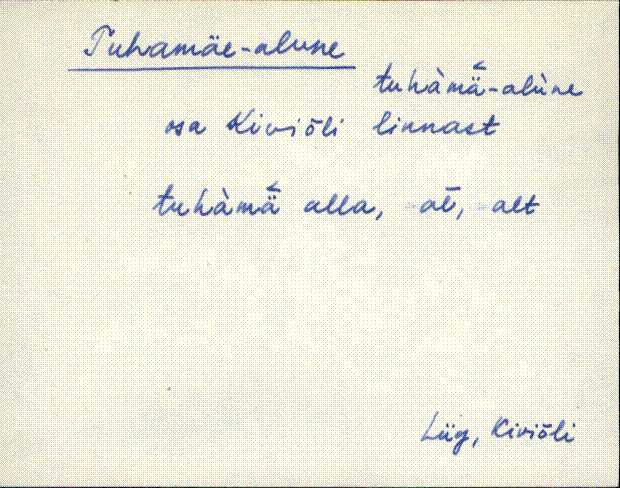 Tuhamäe-alune
tuhàmä̆-alùne
osa Kiviõli linnast
tuhàmä̆ alla, al̄, alt
Lüg, Kiviõli